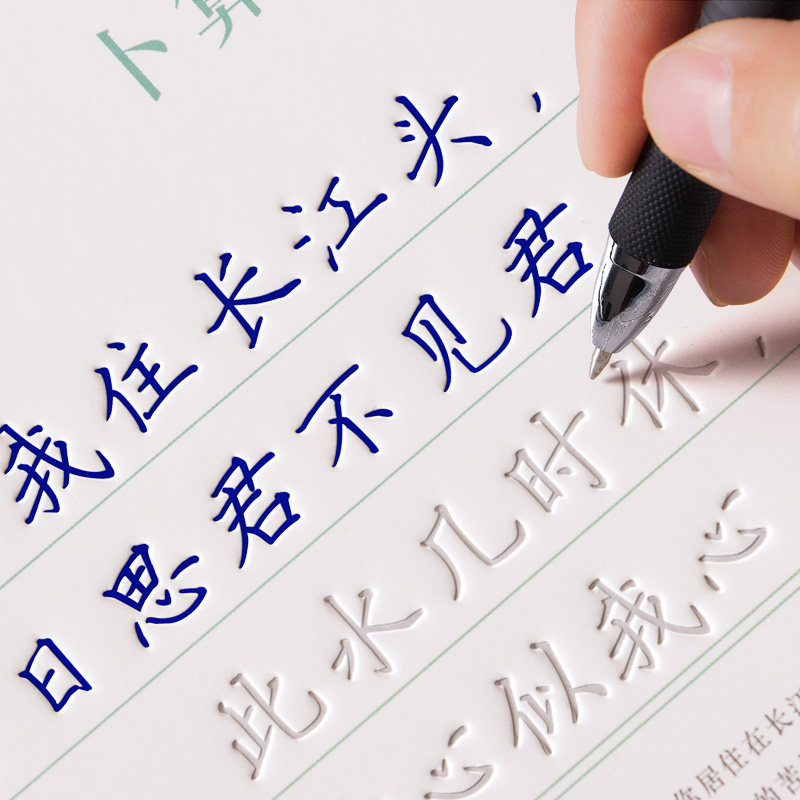 卜算
我住长江头，
日思君不见君
此水几时休，
心似我心
你居住在长江
的苦